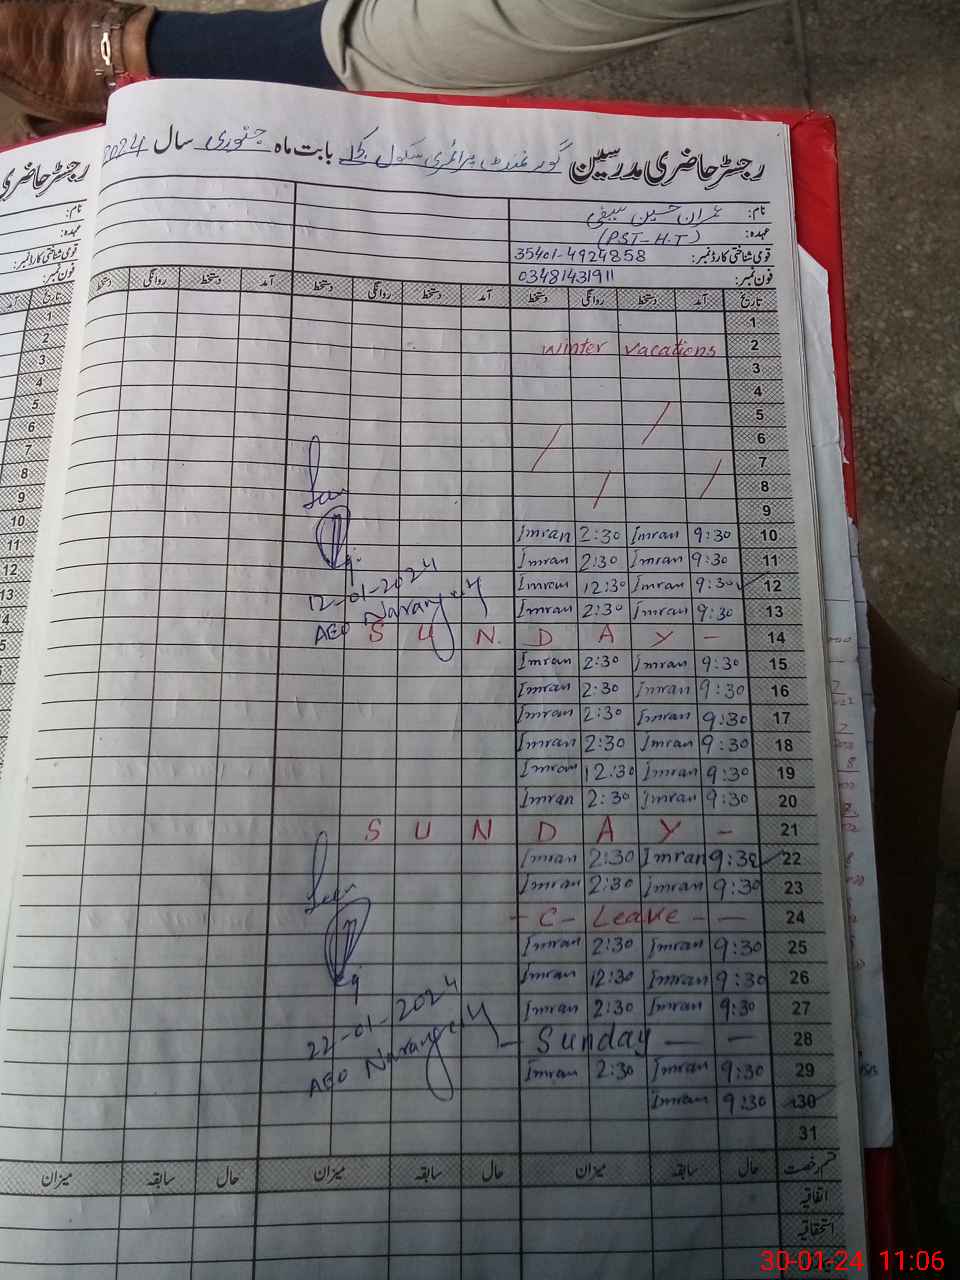 رجسٹر حاضری مدرسین گورنمنٹ پرائمری سکول بابت ماہ جنوری سال 2024
رجسٹر حاضری
نام: عمران حسین سیفی
عہدہ: (PST-H.T)
قومی شناختی کارڈ نمبر: 35401-4924858
فون نمبر: 03481431911
تاریخ آمد دستخط روانگی دستخط آمد دستخط روانگی دستخط آمد دستخط روانگی دستخط
1
2 Winter vacations
3
4
5
6
7
8
9
10 9:30 Imran 2:30 Imran
11 9:30 Imran 2:30 Imran
12 9:30 Imran 12:30 Imran
13 9:30 Imran 2:30 Imran
12-01-2024
AEO Narang
14 S U N D A Y -
15 9:30 Imran 2:30 Imran
16 9:30 Imran 2:30 Imran
17 9:30 Imran 2:30 Imran
18 9:30 Imran 2:30 Imran
19 9:30 Imran 12:30 Imran
20 9:30 Imran 2:30 Imran
21 S U N D A Y -
22 9:30 Imran 2:30 Imran
23 9:30 Imran 2:30 Imran
Seen
24 - C - Leave - -
25 9:30 Imran 2:30 Imran
26 9:30 Imran 12:30 Imran
27 9:30 Imran 2:30 Imran
28 - Sunday - -
22-01-2024
AEO Narang
29 9:30 Imran 2:30 Imran
30 9:30 Imran
31
قسم رخصت حال سابقہ میزان حال سابقہ میزان حال سابقہ میزان
اتفاقیہ
استحقاقیہ
30-01-24 11:06